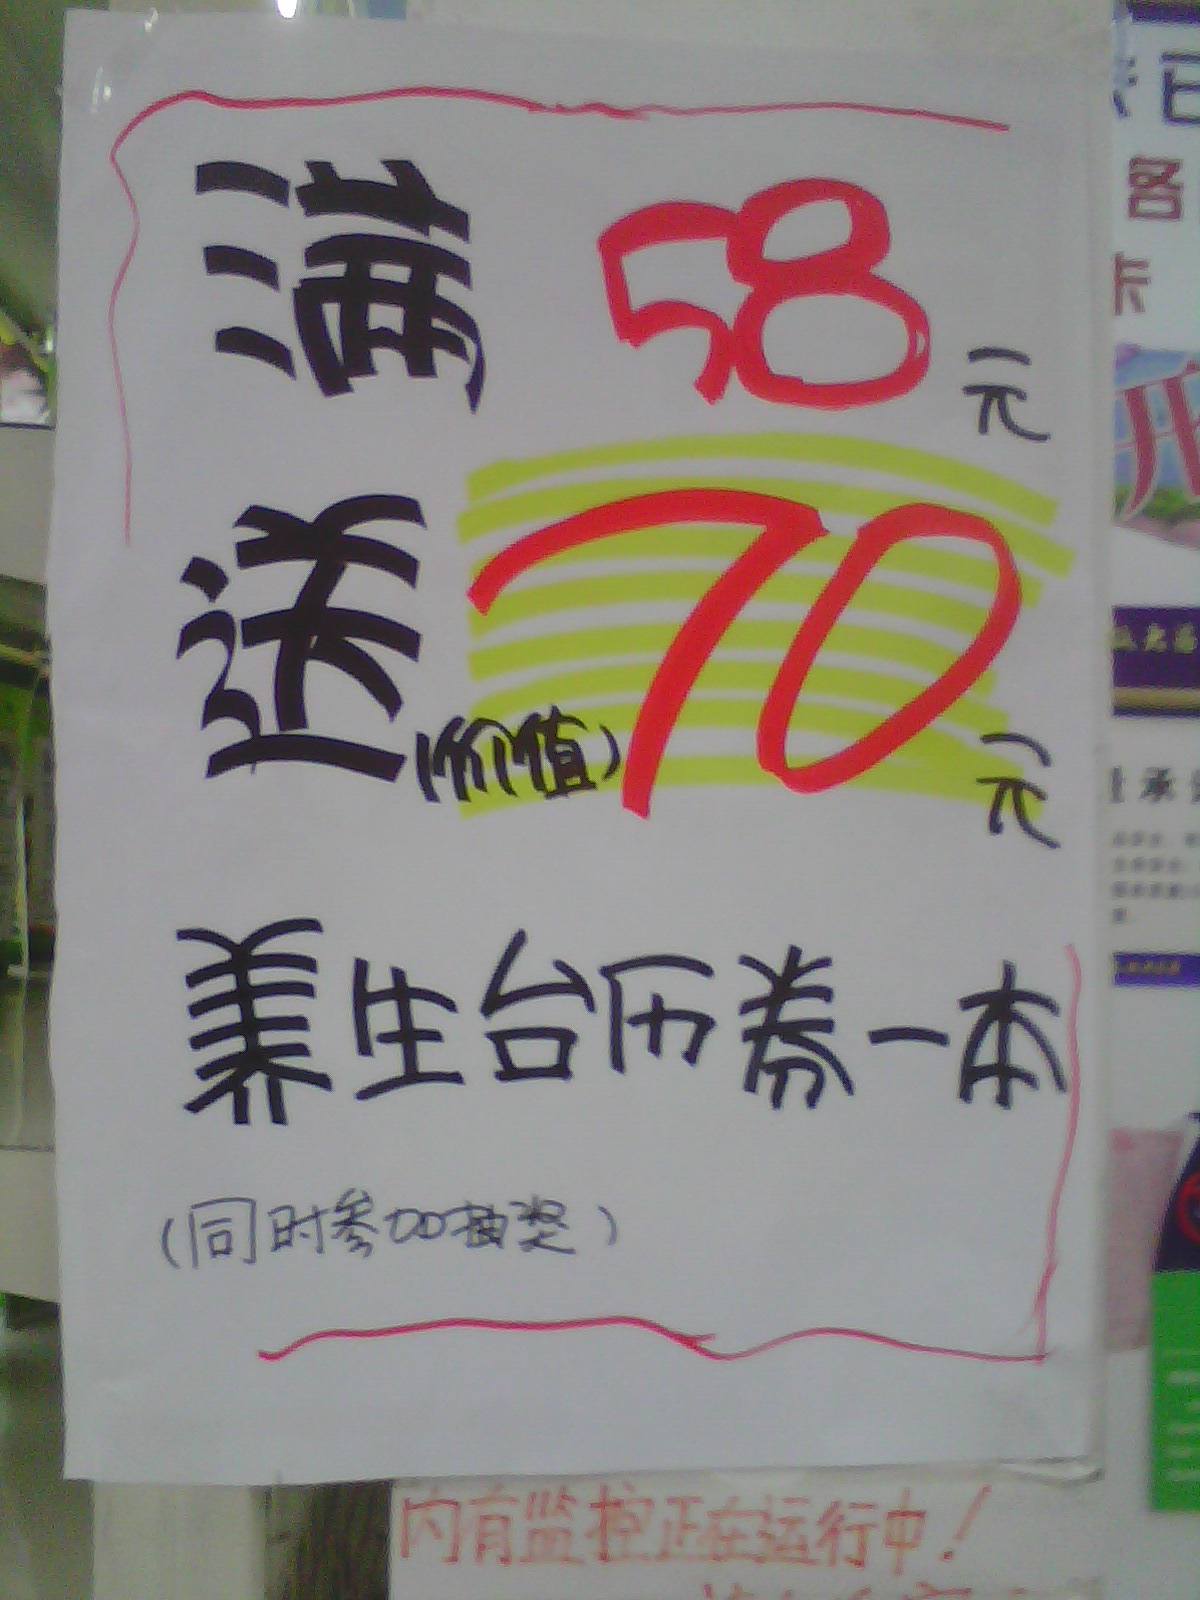 满58元
送(价值)70元
养生台历券一本
(同时参加抽奖)
内有监控正在运行中!